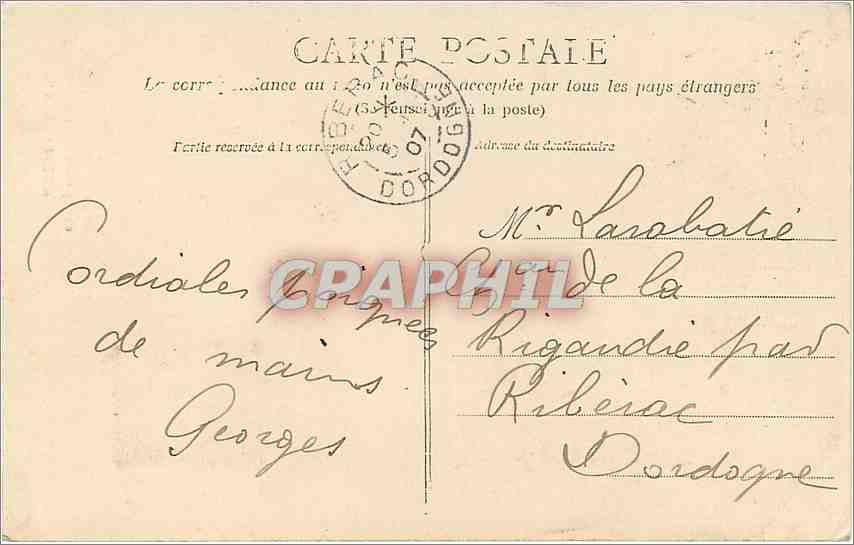 CARTE POSTALE
La correspondance au recto n'est pas acceptée par tous les pays étrangers
(Se renseigner à la poste)
RIBERAC
5
07
DORDOGNE
Partie réservée à la correspondance
Adresse du destinataire
Cordiales poignées
de mains.
Georges
Mr. Larobatié
de la
Rigaudie par
Ribérac
Dordogne
CPAPHIL